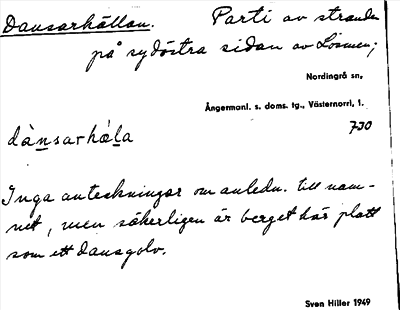 Dansarhällan. Parti av stranden
på sydöstra sidan av Lösmen;
Nordingrå sn,
Ångermanl. s. doms. tg., Västernorrl. l.
730
dànsarhɐ́la
Inga anteckningar om anledn. till nam-
net, men säkerligen är berget här platt
som ett dansgolv.
Sven Hiller 1949